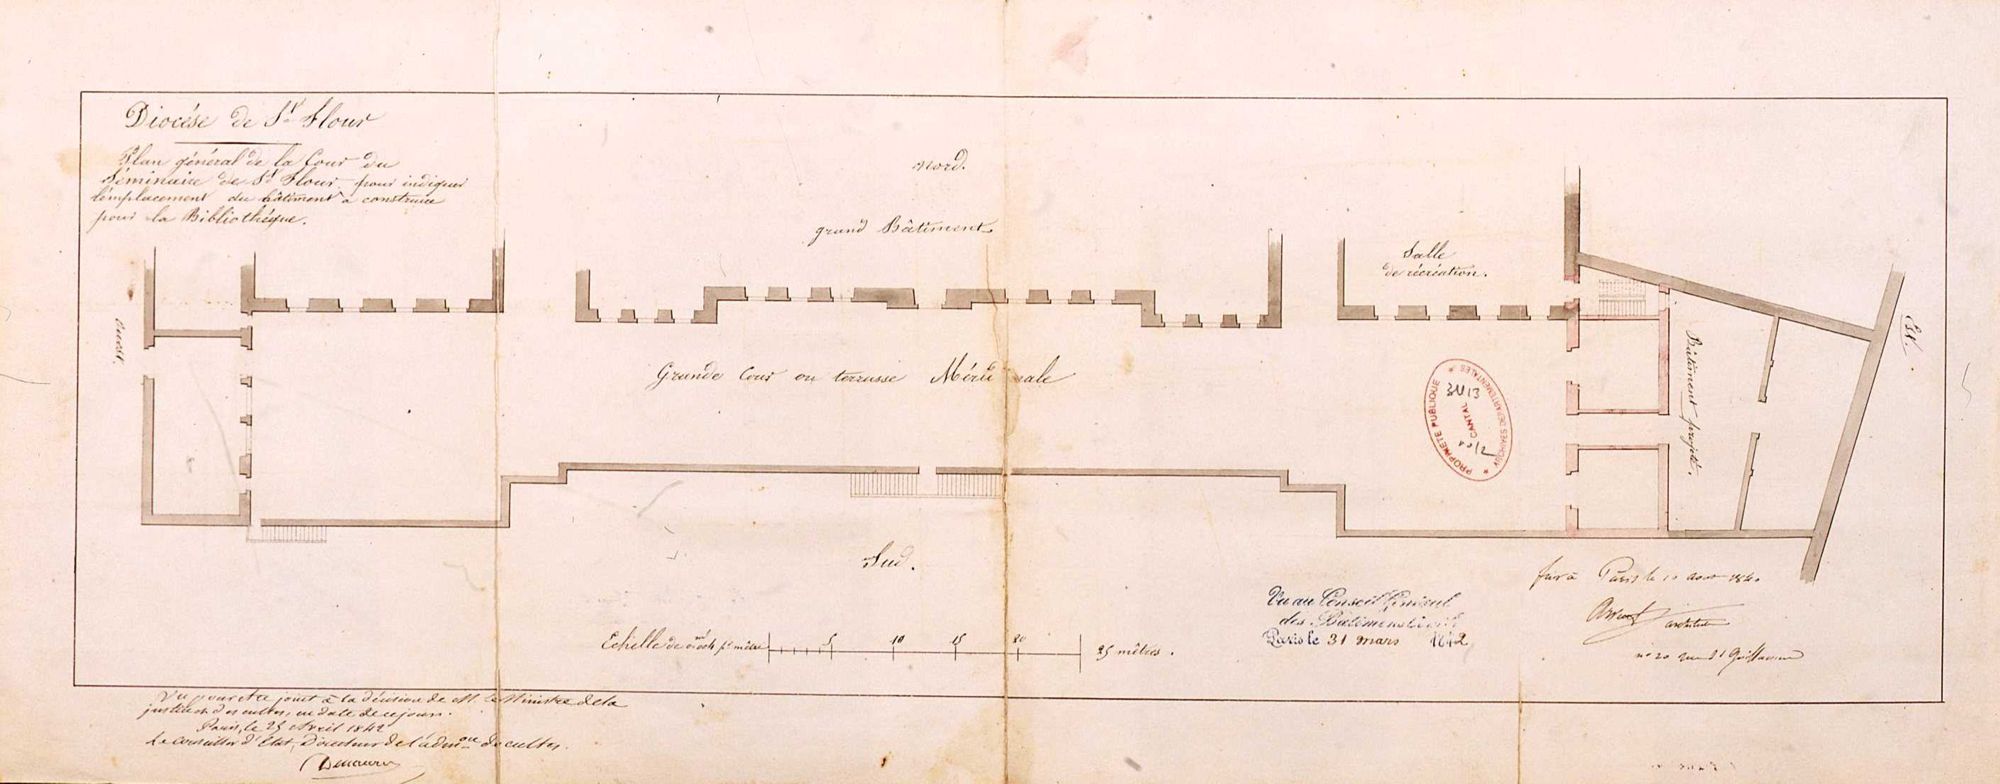 Diocèse de St. Flour
Plan général de la Cour du
Séminaire de St. Flour, pour indiquer
l'emplacement du bâtiment à construire
pour la Bibliothèque.
Nord.
grand Bâtiment.
Salle
de récréation.
Ouest.
Est.
Bâtiment projeté.
Grande Cour ou terrasse Méridionale
PROPRIÉTÉ PUBLIQUE
ARCHIVES DÉPARTEMENTALES
CANTAL
Sud.
Echelle de 0m,004 pr. mètre
5 10 15 20 25 mètres.
Vu au Conseil Général
des Bâtiments Civils
Paris le 31 mars 1842
Paris le 10 août 1840
architecte
no 20 rue St Guillaume
Vu pour être joint à la décision de M. le Ministre de la
justice et des cultes, en date de ce jour.
Paris, le 25 Avril 1842
Le conseiller d'Etat, Directeur de l'admon des cultes.